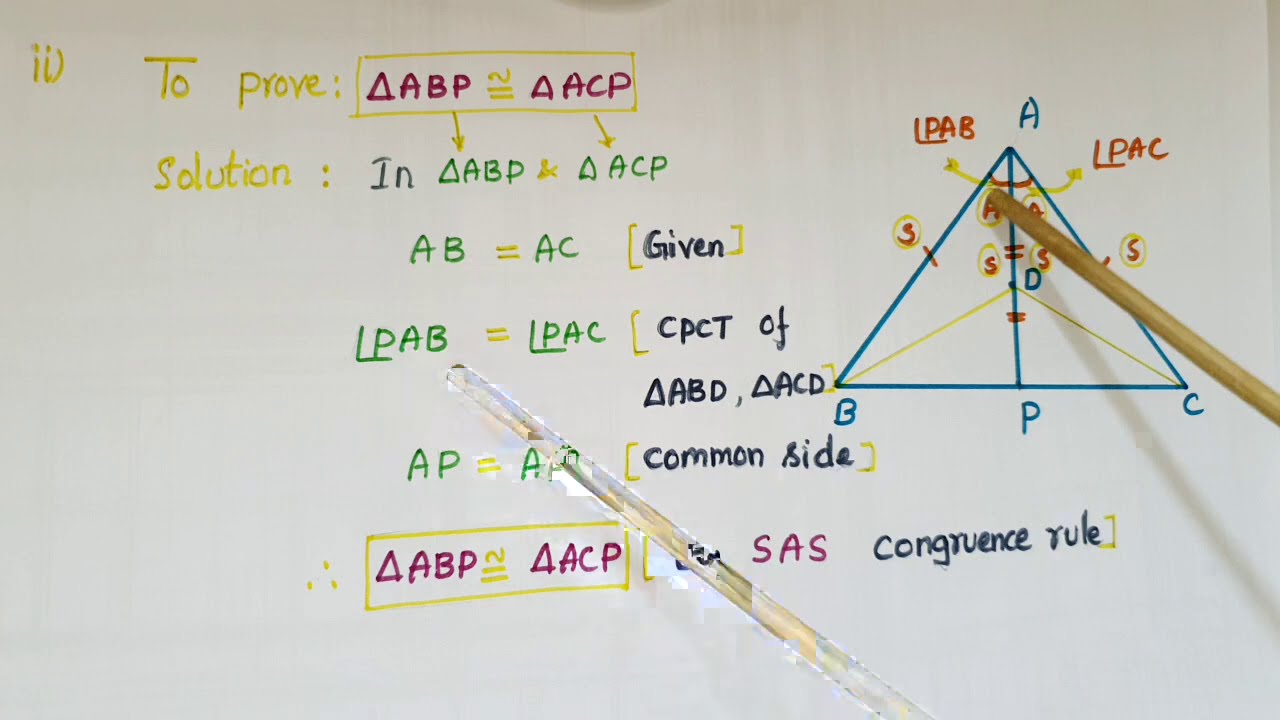 ii) To prove: ΔABP ≅ ΔACP
Solution: In ΔABP & ΔACP
AB = AC [Given]
∠PAB = ∠PAC [CPCT of
ΔABD, ΔACD]
AP = [common side]
∴ ΔABP ≅ ΔACP [ SAS congruence rule]
A
∠PAB
∠PAC
A A
S S
S S
D
B P C